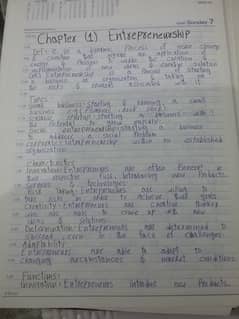 Sunday 7
Chapter (1) Entrepreneurship
Def: It is a dynamic process of vision change
& creation that requires an application of
energy & passion towards the creation &
implementation of new ideas & creative solution
Entrepreneurship is a process of starting
a business or organization, taking on
the risks & rewards associated with it.
Types
small business: starting & running a small
business
scalable startup: starting a business with
the potential to
social entrepreneurship: starting a business
to address a social problem
corporate: entrepreneurship within an established
organization.
Characteristics
Innovation: Entrepreneurs are often Pioneer in
their respective field, introducing new Products
services & technologies.
Risk taking: Entrepreneurs are willing to
take risks in order to achieve their goals.
Creativity: Entrepreneurs are creative thinker
who are able to come up with new
ideas & solutions.
Determination: Entrepreneurs are determined to
succeed even in the face of challenges.
Adaptability:
Entrepreneurs are able to adapt to
changing circumstances & market conditions.
Functions:
Innovation: Entrepreneurs introduct new Products